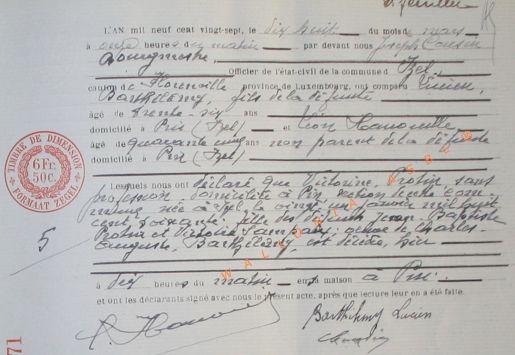 2e feuillet
L'AN mil neuf cent vingt-sept, le dix huit du mois de mars
à onze heures du matin par devant nous Joseph
Bourgmestre
Officier de l'état civil de la commune d' Izel
canton de Florenville province de Luxembourg, ont comparu Lucien
Barthélemy, fils de la défunte
âgé de trente-six ans
domicilié à Pin (Izel) et Léon
âgé de quarante cinq ans non parent de la défunte
domicilié à Pin (Izel)
Lesquels nous ont déclaré que Victorine Protin, sans
profession domiciliée à Pin section de cette com-
mune née à Izel le cinq janvier mil huit
cent soixante, fille des Jean-Baptiste
Protin et Lampaix, de Charles-
Auguste Barthélemy, est décédée hier
à dix heures du matin en sa maison à Pin.
et ont les déclarants signé avec nous le présent acte, après que lecture leur en a été faite.
Barthélemy Lucien
TIMBRE DE DIMENSION
6 Fr.
50 C.
FORMAAT ZEGEL
5
71